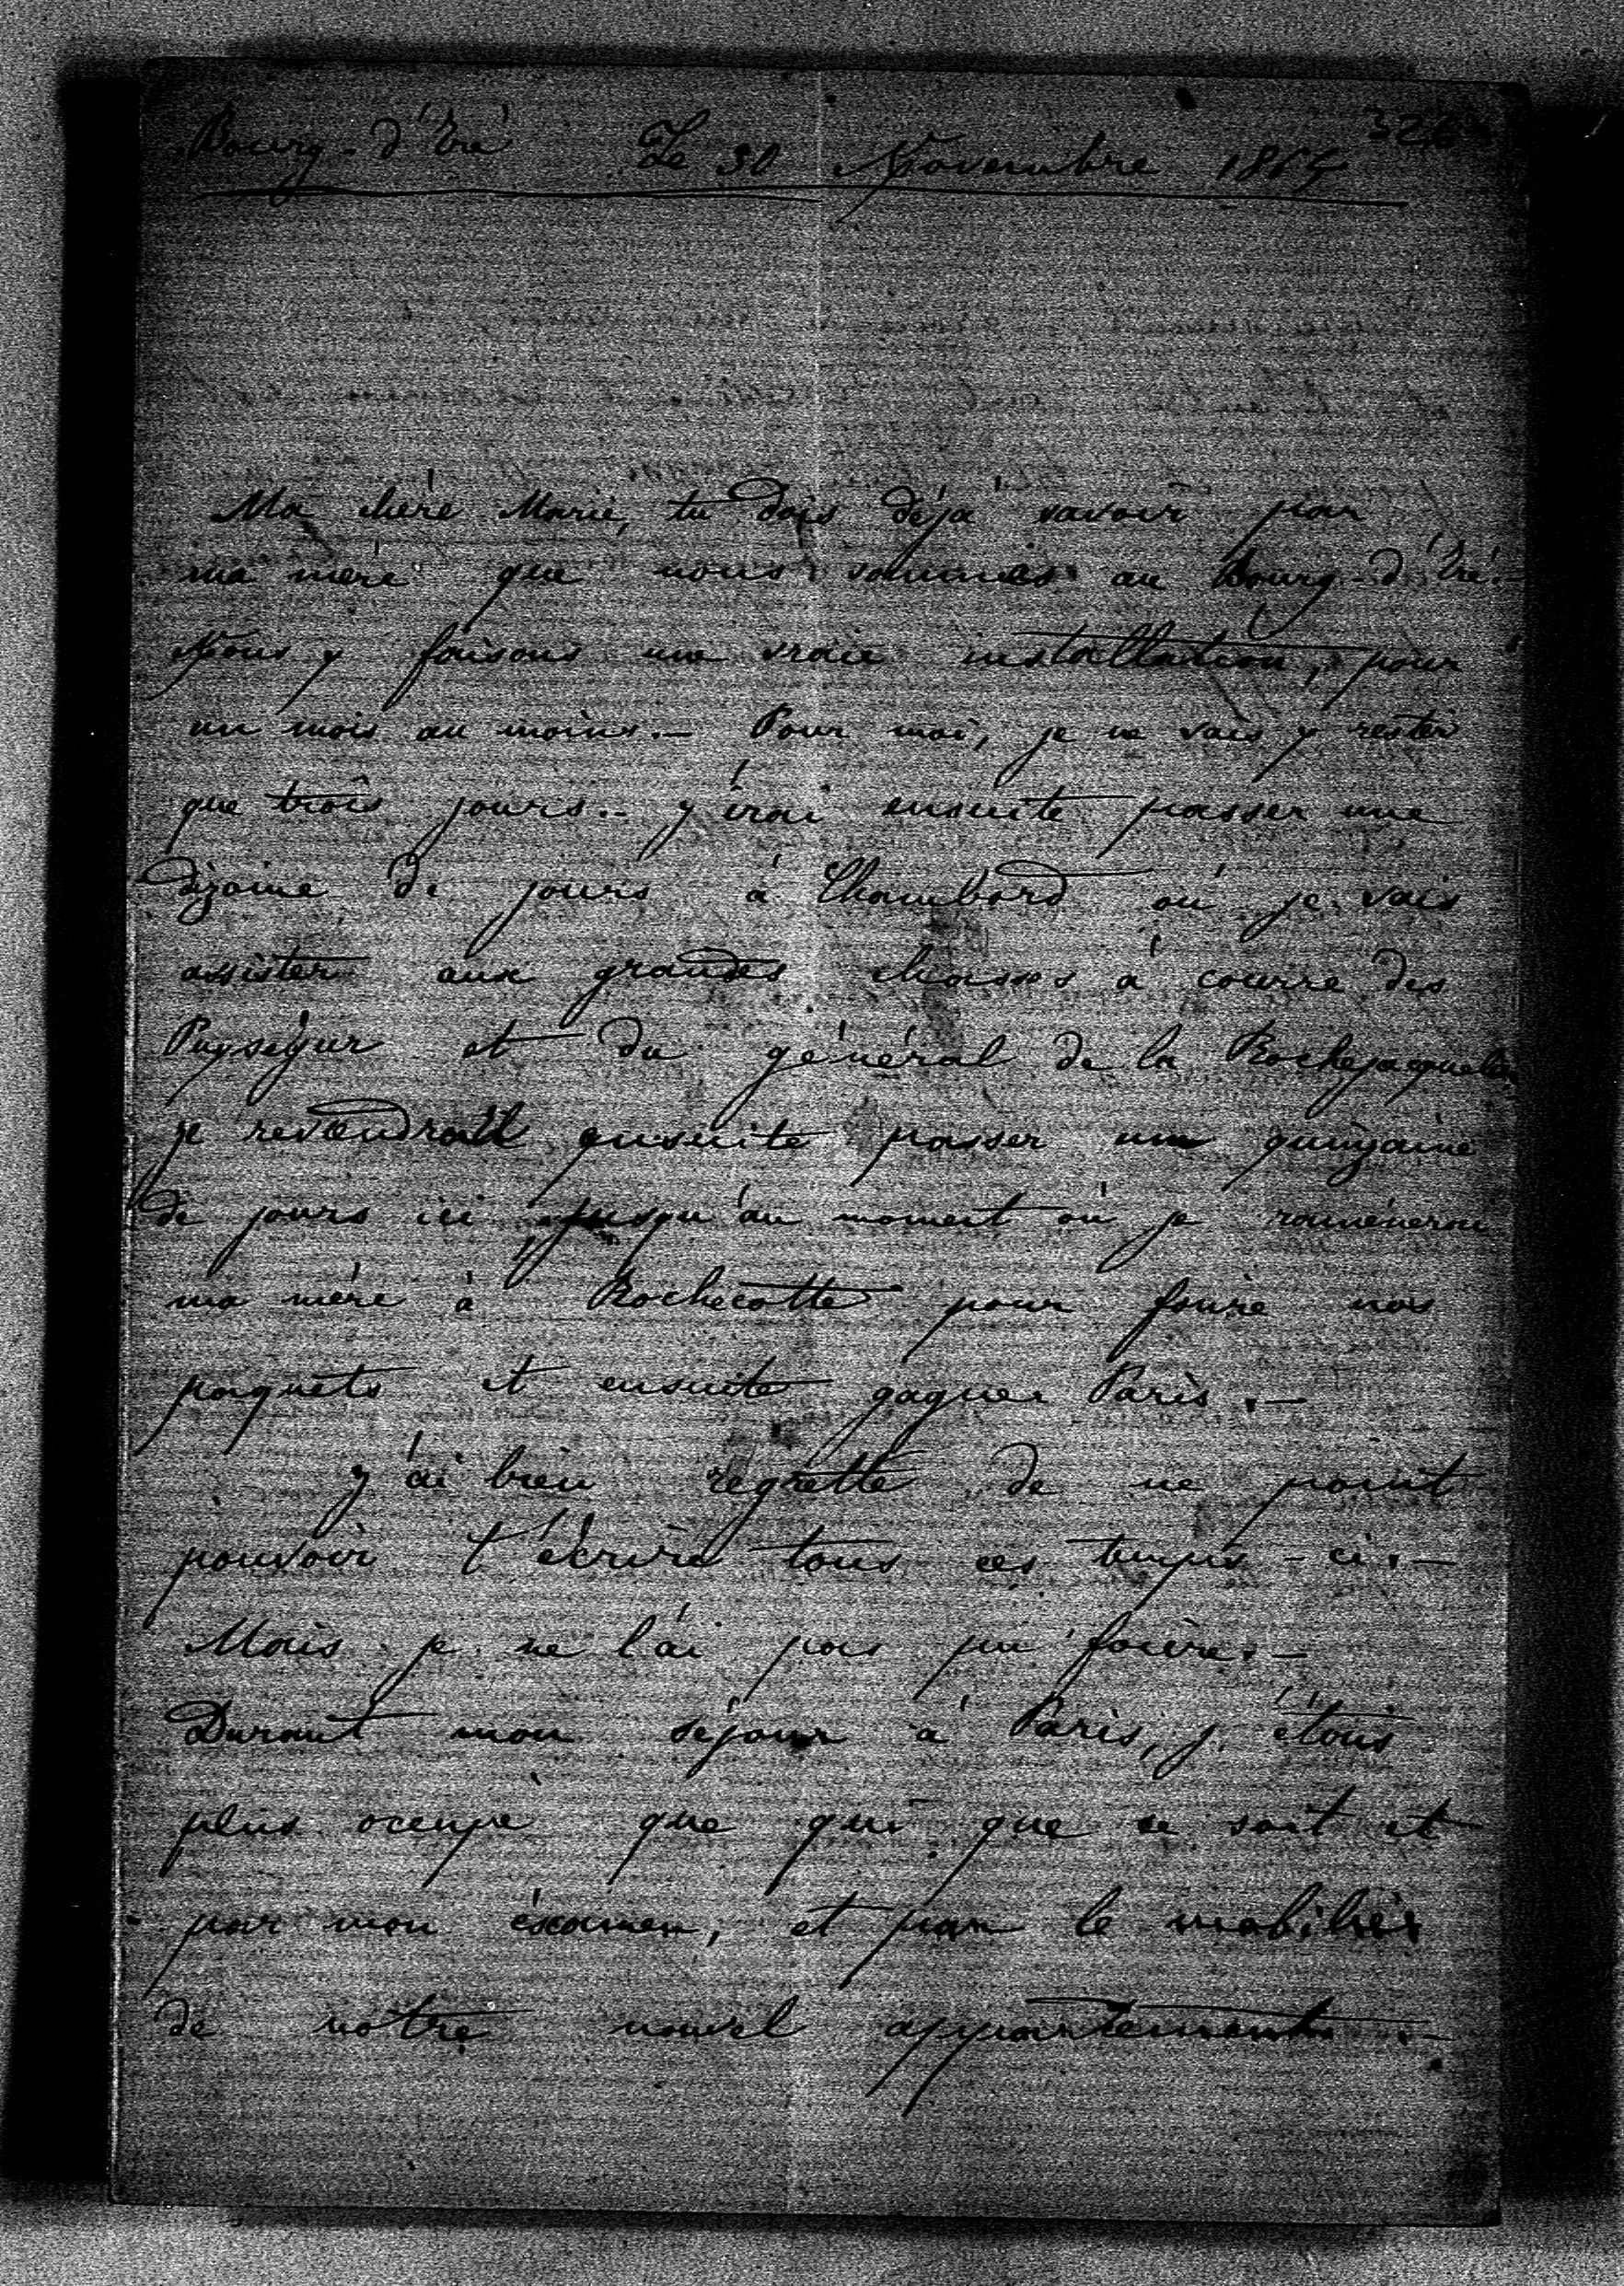 326
Bourg-d'Iré Le 30 Novembre 1864
Ma chère Marie, tu dois déjà savoir par
ma mère que nous sommes au Bourg-d'Iré.-
Nous y faisons une vraie installation, pour
un mois au moins.- Pour moi, je ne vais y rester
que trois jours.- J'irai ensuite passer une
dizaine de jours à Chambord où je vais
assister aux grandes chasses à courre des
Puységur et du général de la Rochejaquelein
je reviendrai ensuite passer une quinzaine
de jours ici jusqu'au moment où je ramènerai
ma mère à Rochecotte pour faire nos
paquets et ensuite gagner Paris.-
J'ai bien regretté de ne point
pouvoir t'écrire tous ces temps-ci.-
Mais je ne l'ai pas pu faire.-
Durant mon séjour à Paris, j'étais
plus occupé que qui que ce soit et
par mon éxamen, et par le mobilier
de notre nouvel appartement.-